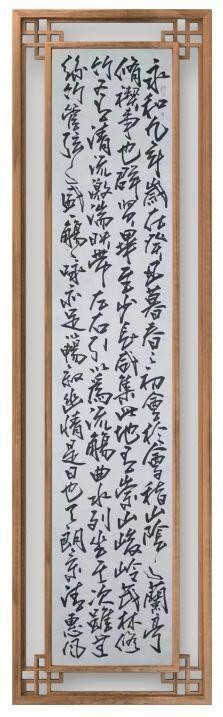 永和九年歲在癸丑暮春之初會於會稽山陰之蘭亭
脩禊事也群賢畢至少長咸集此地有崇山峻岭茂林修
竹又有清流激湍映帶左右引以為流觴曲水列坐其次雖無
絲竹管弦之盛一觴一詠亦足以暢敘幽情是日也天朗氣清惠風